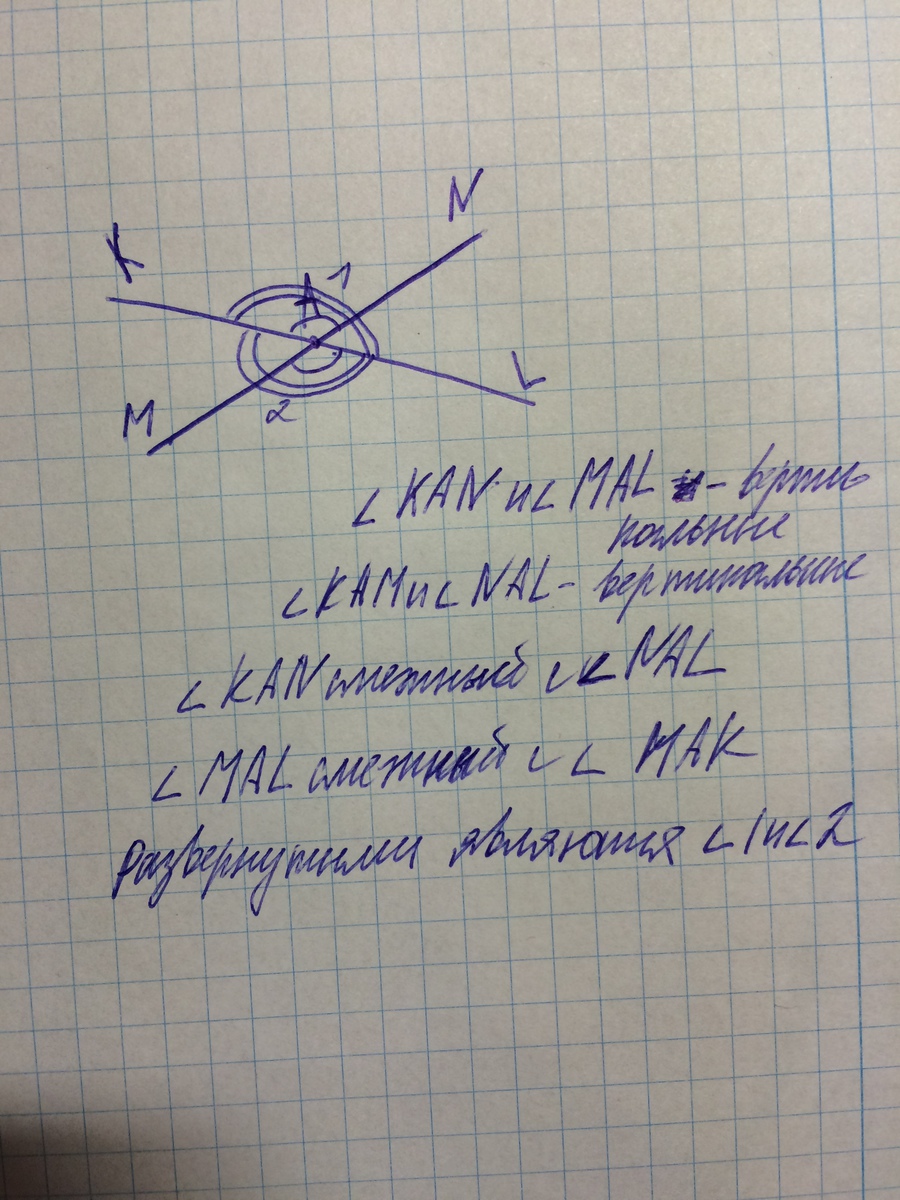 K
N
A 1
M
2
L
∠ KAN и ∠ MAL - верти
кальные
∠ KAM и ∠ NAL - вертикальные
∠ KAN смежный с ∠ NAL
∠ MAL смежный с ∠ MAK
Развернутыми являются ∠ 1 и ∠ 2